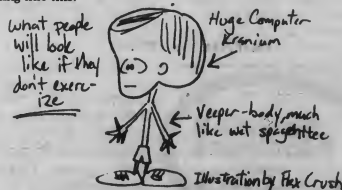 what people
will look
like if they
don't exer-
ize
Huge Computer
Kranium
Veeper-body, much
like wet spagehttee
Illustration by Flex Crush